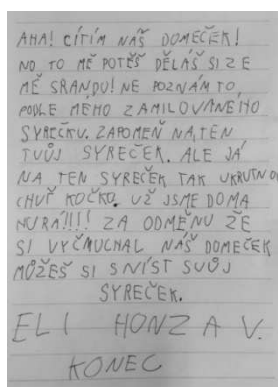 AHA! CÍTÍM NÁŠ DOMEČEK!
NO TO MĚ POTĚŠ DĚLÁŠ SI ZE
MĚ SRANDU! NE POZNÁM TO,
PODLE MÉHO ZAMILOVANÉHO
SYREČKU. ZAPOMEŇ NA TEN
TVŮJ SYREČEK. ALE JÁ
NA TEN SYREČEK TAK UKRUTNOU
CHUŤ KOČKO. UŽ JSME DOMA
HURÁ!!!! ZA ODMĚNU ŽE
SI VYČMUCHAL NÁŠ DOMEČEK
MŮŽEŠ SI SNÍST SVŮJ
SYREČEK.
ELI HONZA V.
KONEC